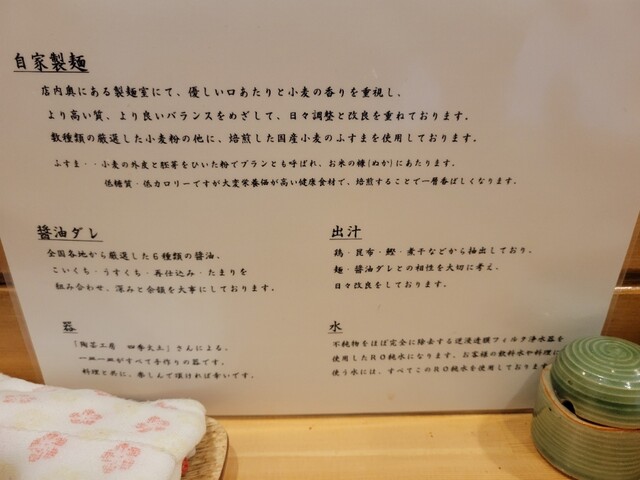 自家製麺
店内奥にある製麺室にて、優しい口あたりと小麦の香りを重視し、
より高い質、より良いバランスをめざして、日々調整と改良を重ねております。
数種類の厳選した小麦粉の他に、焙煎した国産小麦のふすまを使用しております。
ふすま・・小麦の外皮と胚芽をひいた粉でブランとも呼ばれ、お米の糠(ぬか)にあたります。
低糖質・低カロリーですが大変栄養価が高い健康食材で、焙煎することで一層香ばしくなります。
醤油ダレ
全国各地から厳選した6種類の醤油、
こいくち・うすくち・再仕込み・たまりを
組み合わせ、深みと余韻を大事にしております。
出汁
鶏・昆布・鰹・煮干などから抽出しており、
麺・醤油ダレとの相性を大切に考え、
日々改良をしております。
器
「陶芸工房 四季火土」さんによる、
一皿一皿がすべて手作りの器です。
料理と共に、楽しんで頂ければ幸いです。
水
不純物をほぼ完全に除去する逆浸透膜フィルタ浄水器を
使用したRO純水になります。お客様の飲料水や料理に
使う水には、すべてこのRO純水を使用しております